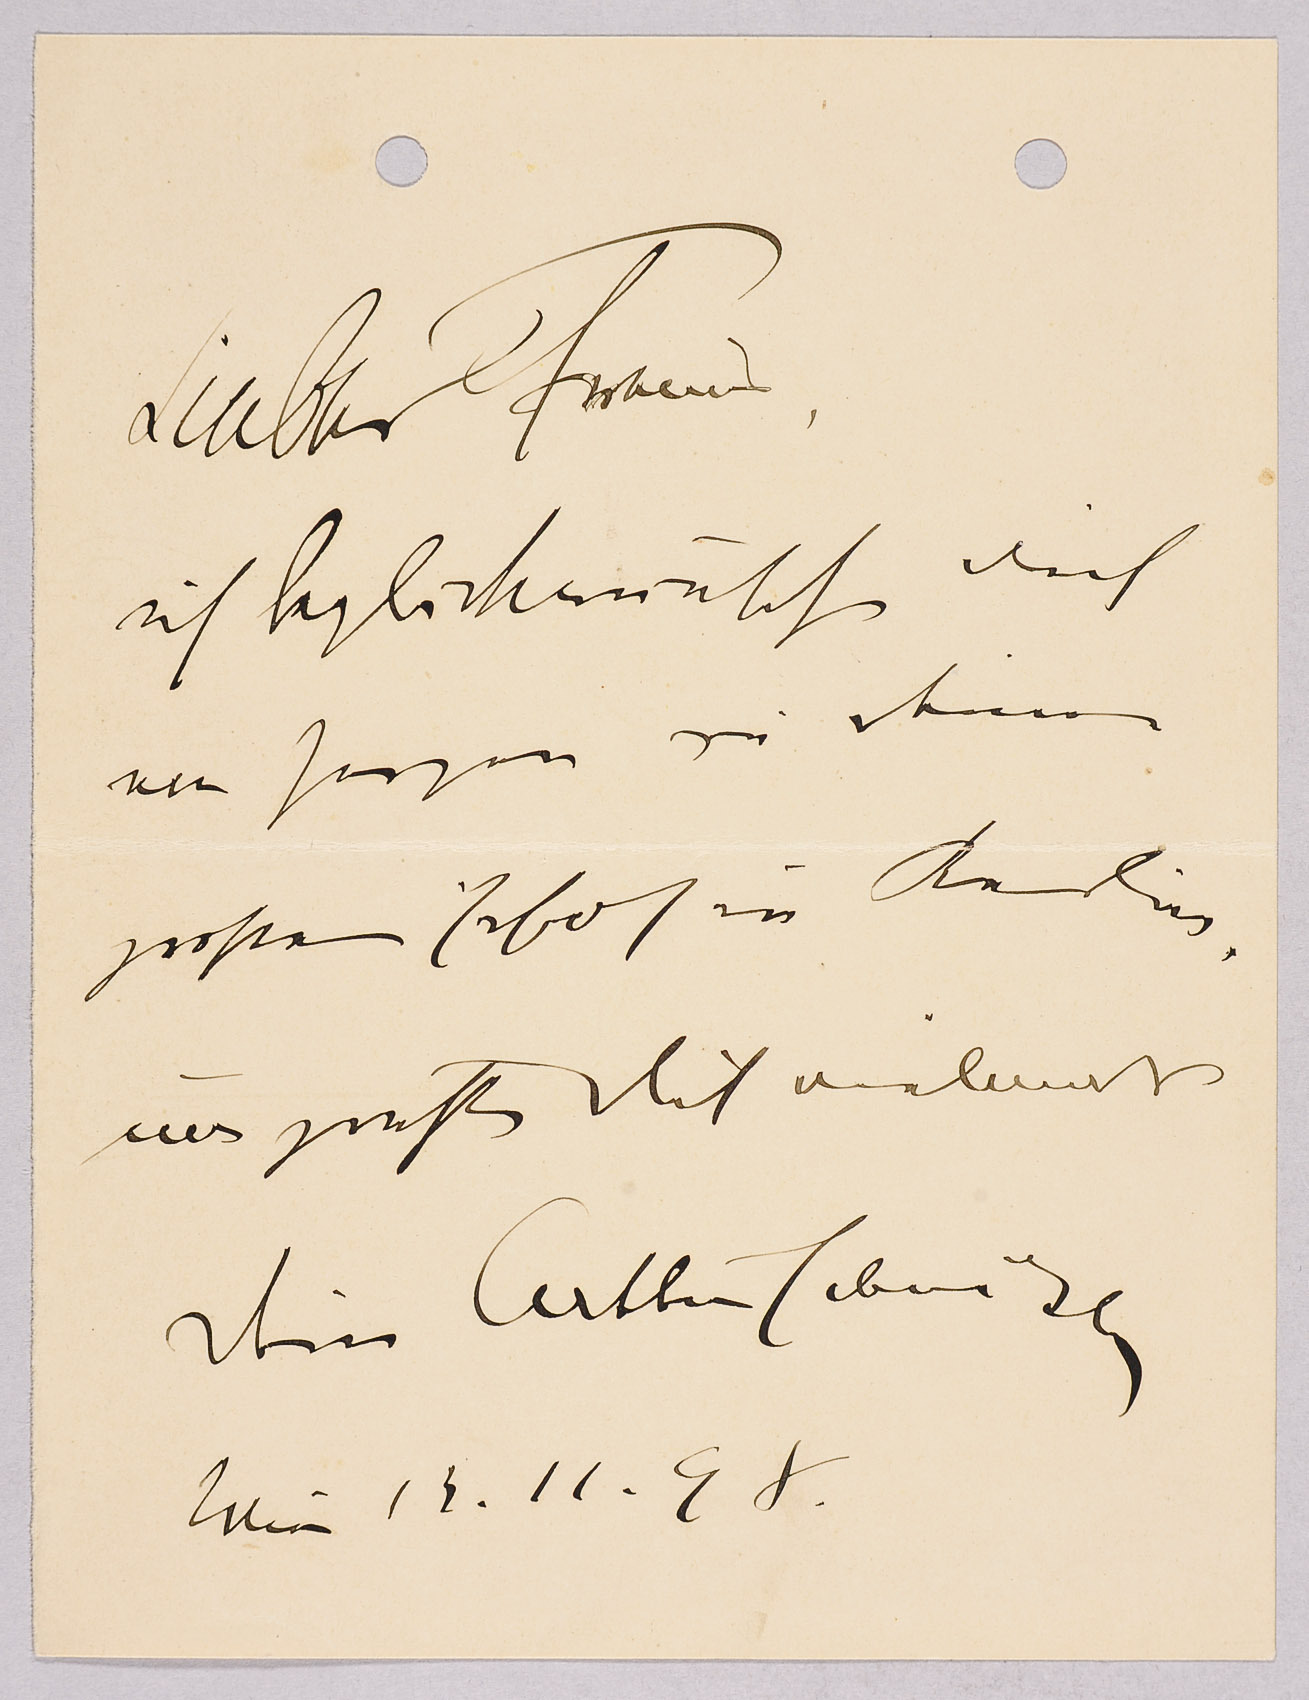 Lieber Freund,
ich beglückwünsche dich
von Herzen zu deinem
großen Erfolg in Berlin,
und grüße dich vielmals
Dein Arthur Schnitzler
Wien 13. 11. 98.